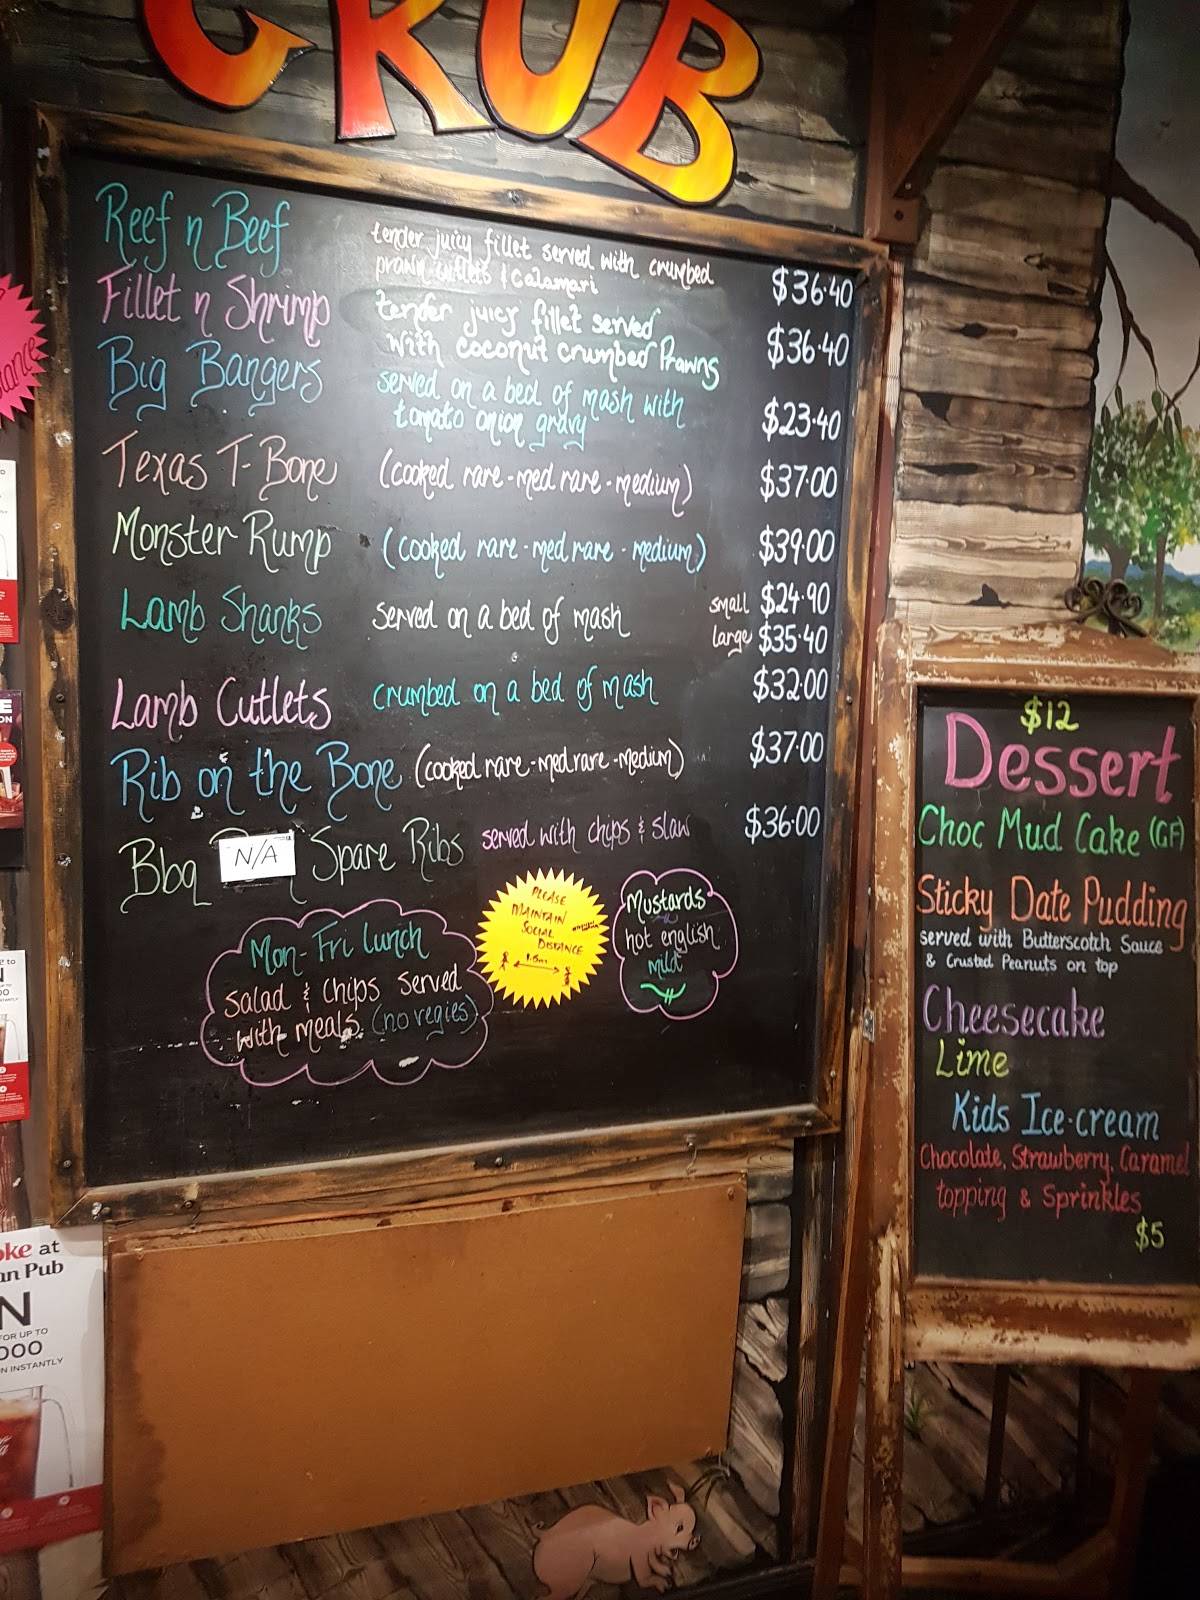 GRUB
Reef n Beef
tender juicy fillet served with crumbed
prawn cutlets & Calamari
$36.40
Fillet n Shrimp
tender juicy fillet served
with coconut crumbed Prawns
$36.40
Big Bangers
served on a bed of mash with
tomato onion gravy
$23.40
Texas T-Bone (cooked rare-med rare-medium) $37.00
Monster Rump (cooked rare-med rare-medium) $39.00
Lamb Shanks served on a bed of mash small $24.90
large $35.40
Lamb Cutlets crumbed on a bed of mash $32.00
Rib on the Bone (cooked rare-med rare-medium) $37.00
Bbq N/A Spare Ribs served with chips & slaw $36.00
Mon-Fri lunch
salad & chips served
with meals. (no vegies)
PLEASE
MAINTAIN
SOCIAL
DISTANCE
1.5m
Mustards
hot english
mild
$12
Dessert
Choc Mud Cake (GF)
Sticky Date Pudding
served with Butterscotch Sauce
& Crusted Peanuts on top
Cheesecake
Lime
Kids Ice-cream
Chocolate, Strawberry, Caramel
topping & Sprinkles
$5
oke at
an Pub
N
FOR UP TO
000
N INSTANTLY